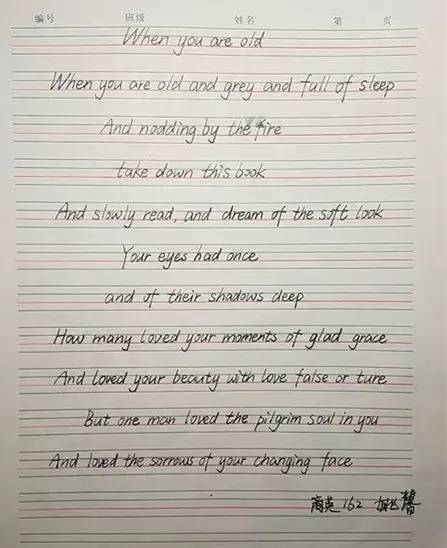 编号 班级 姓名 第 页
When you are old
When you are old and grey and full of sleep
And nodding by the fire
take down this book
And slowly read, and dream of the soft look
Your eyes had once
and of their shadows deep
How many loved your moments of glad grace
And loved your beauty with love false or ture
But one man loved the pilgrim soul in you
And loved the sorrows of your changing face
商英162